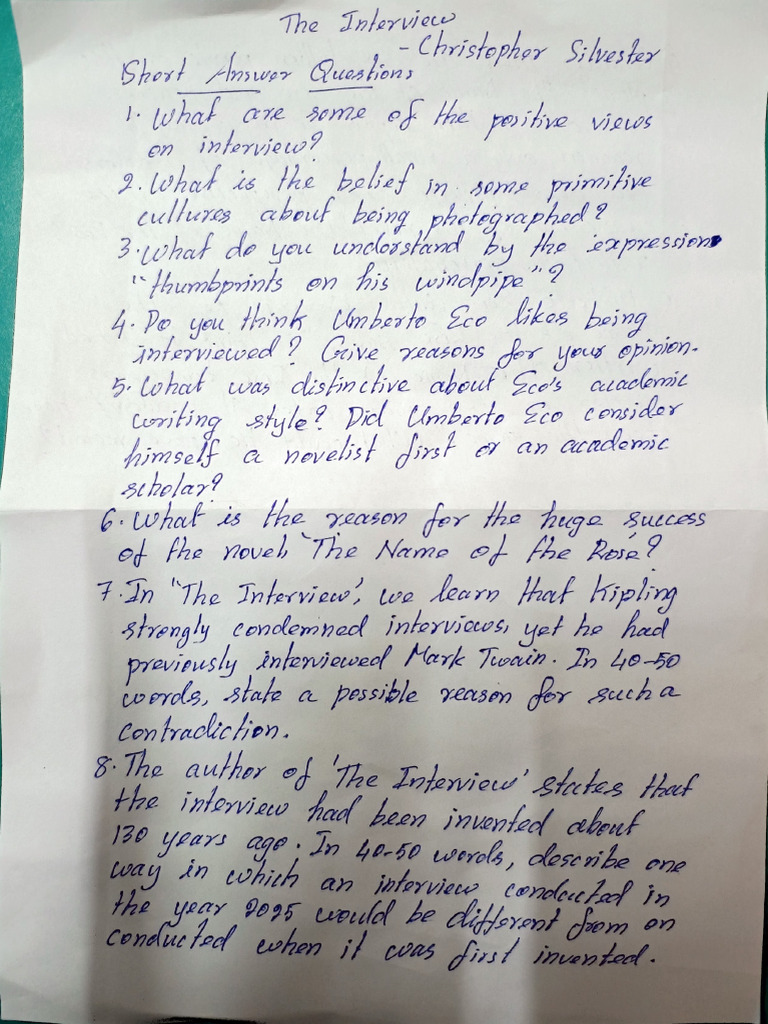 The Interview
- Christopher Silvester
Short Answer Questions
1. What are some of the positive views
on interview?
2. What is the belief in some primitive
cultures about being photographed?
3. What do you understand by the expression
"thumbprints on his windpipe"?
4. Do you think Umberto Eco likes being
interviewed? Give reasons for your opinion.
5. What was distinctive about Eco's academic
writing style? Did Umberto Eco consider
himself a novelist first or an academic
scholar?
6. What is the reason for the huge success
of the novel, 'The Name of the Rose'?
7. In "The Interview', we learn that Kipling
strongly condemned interviews, yet he had
previously interviewed Mark Twain. In 40-50
words, state a possible reason for such a
contradiction.
8. The author of 'The Interview' states that
the interview had been invented about
130 years ago. In 40-50 words, describe one
way in which an interview conducted in
the year 2025 would be different from on
conducted when it was first invented.